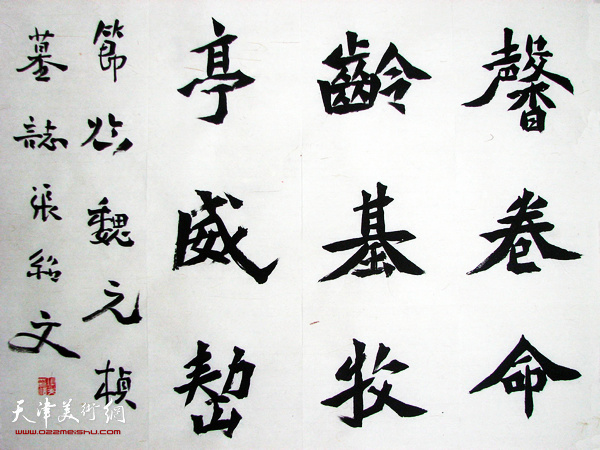 馨卷命
齡基牧
亭威
節临魏元楨
墓誌張紹文
天津美術網
www.022meishu.com